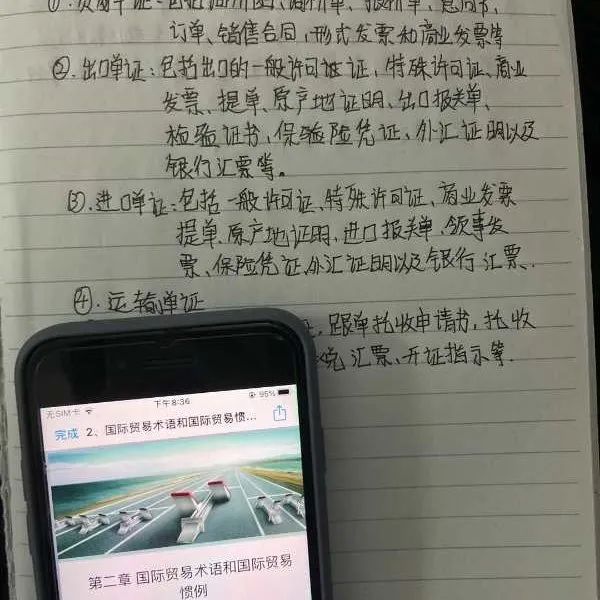 订单、销售合同、形式发票和商业发票等
②.出口单证:包括出口的一般许可证证、特殊许可证、商业
发票、提单、原产地证明、出口报关单、
检验证书、保验险凭证、外汇证明以及
银行汇票等。
③.进口单证:包括一般许可证、特殊许可证、商业发票
提单、原产地证明、进口报关单、领事发
票、保险凭证、外汇证明以及银行汇票、
④.运输单证
跟单托收申请书,托收
汇票、开证指示等.
无SIM卡 下午8:36 95%
完成 2、国际贸易术语和国际贸易惯...
第二章 国际贸易术语和国际贸易
惯例